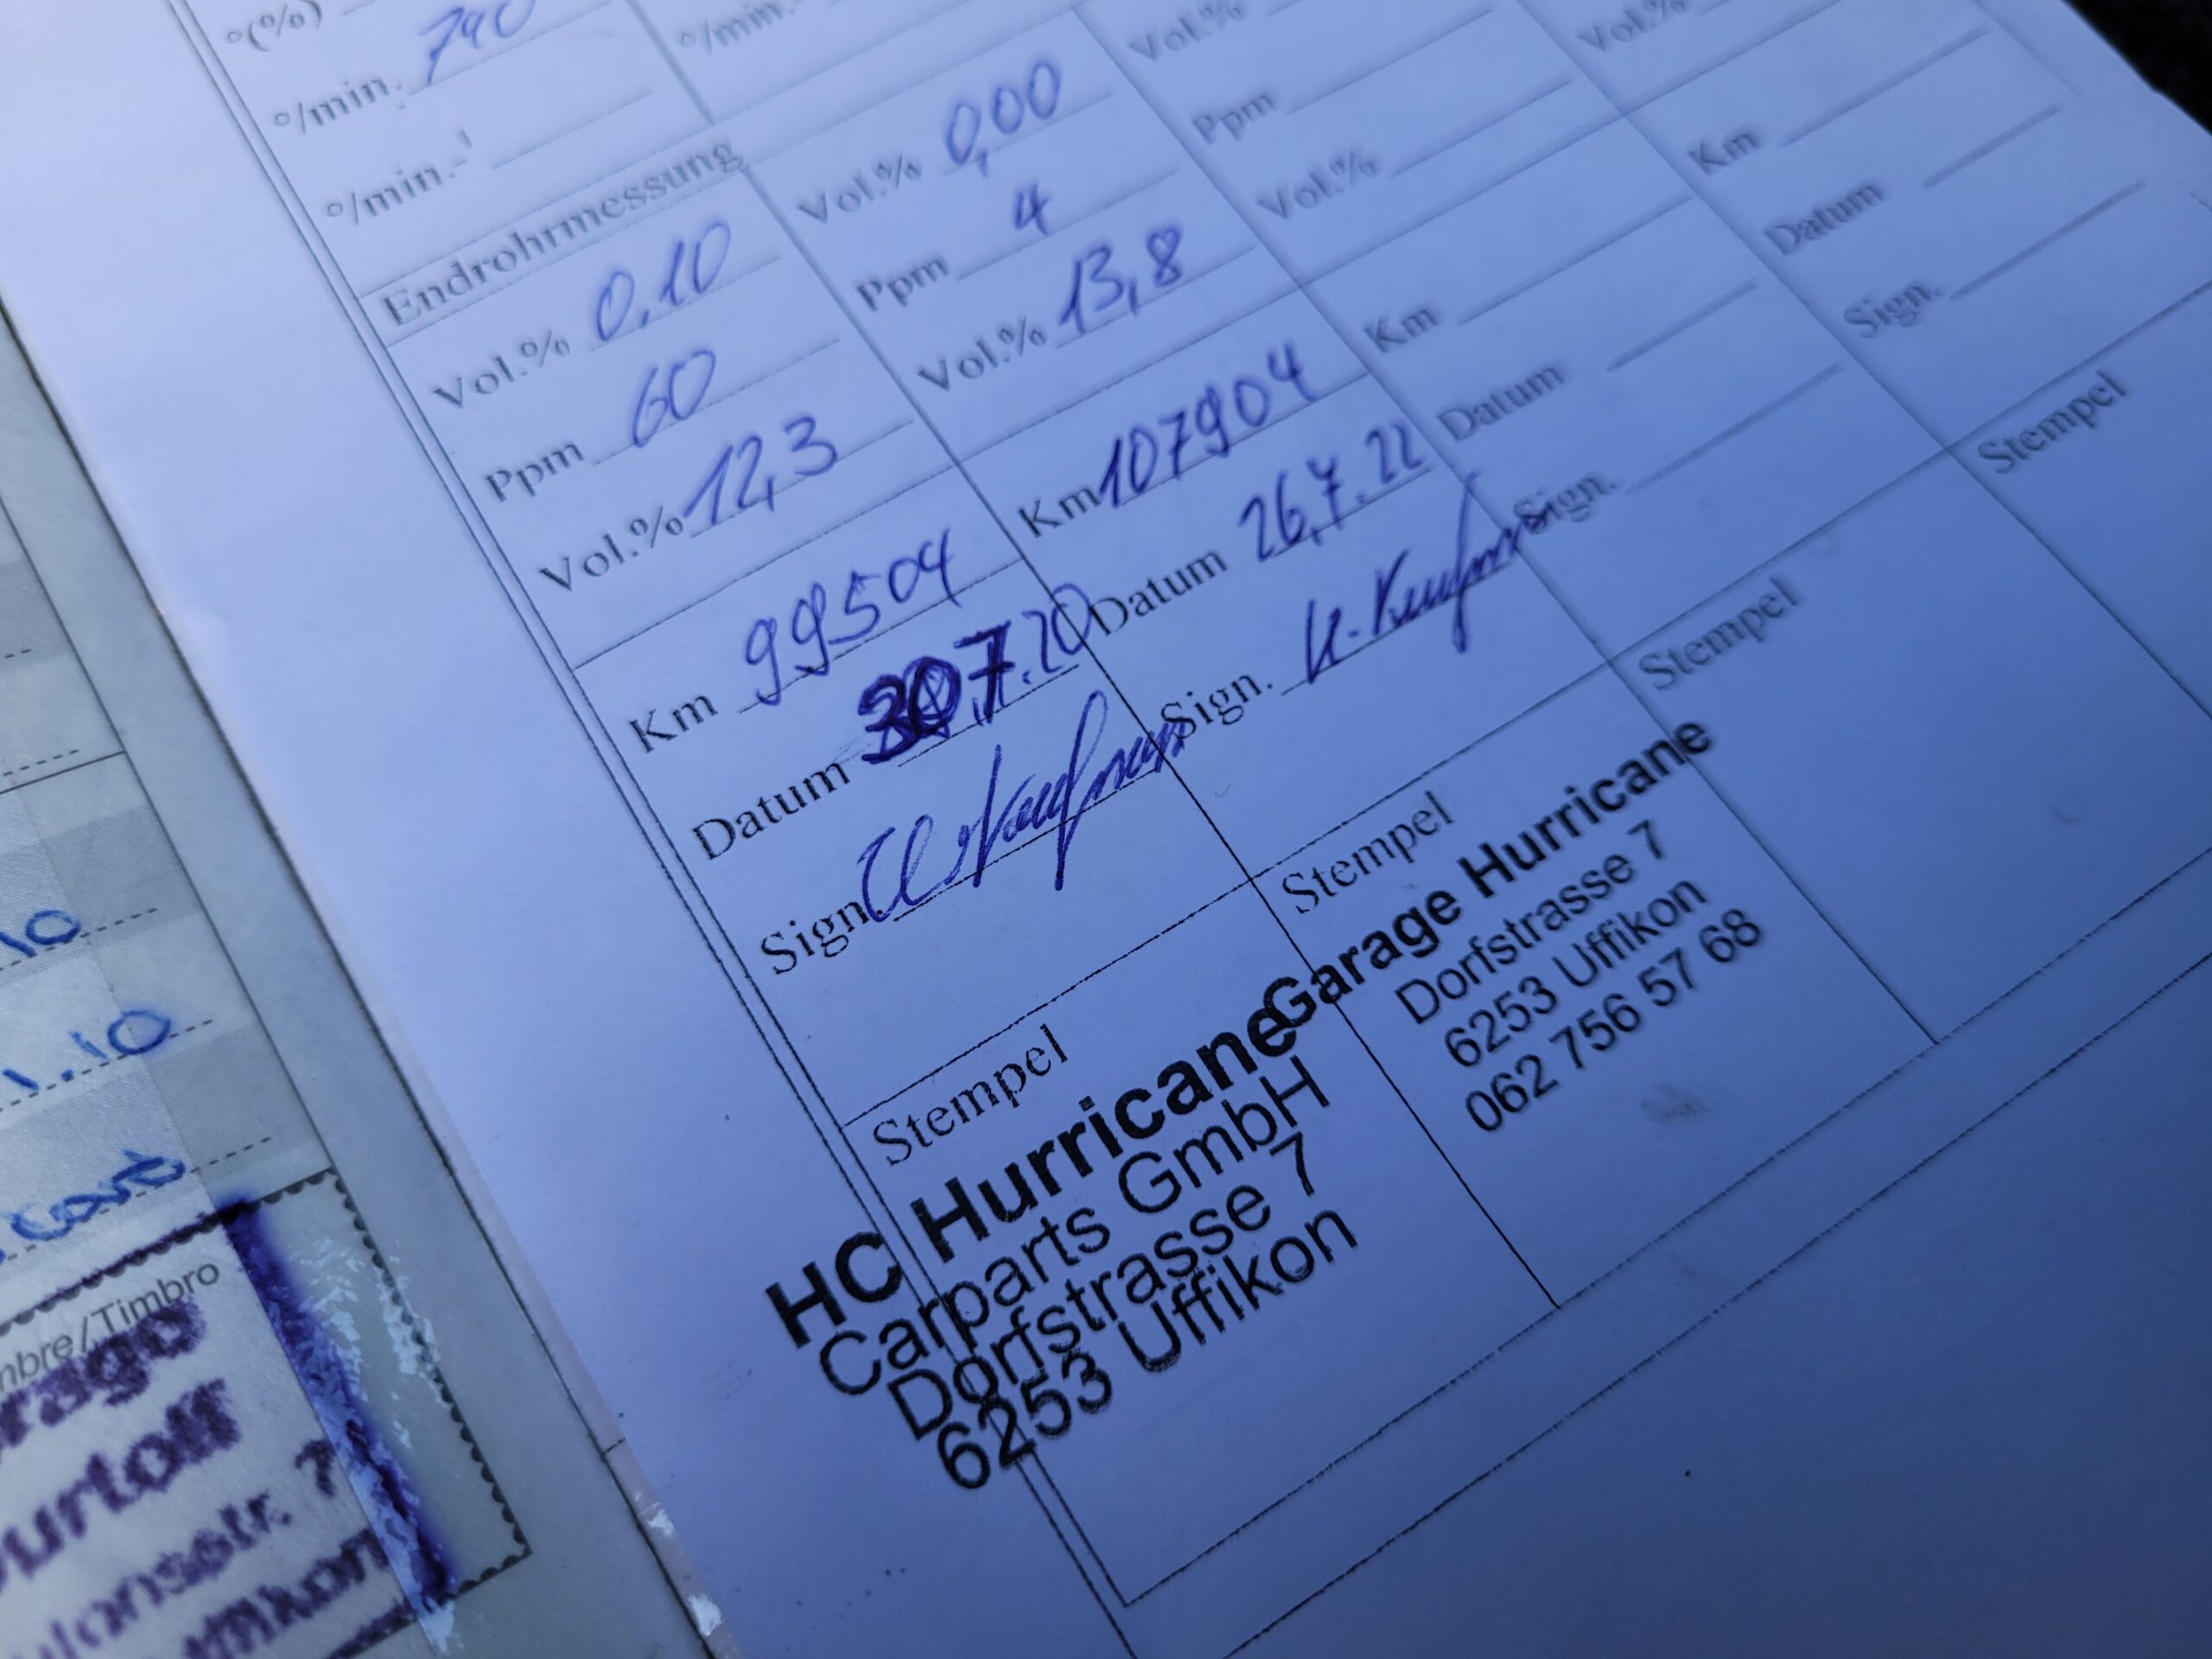 °(%)
°/min. 740
°/min.-¹
Endrohrmessung
Vol.% 0,10
Ppm 60
Vol.% 12,3
Km 99504
Datum 30.7.20
Sign. U. Kaufmann
Stempel
HC Hurricane
Carparts GmbH
Dorfstrasse 7
6253 Uffikon
°/min.-
Vol.% 0,00
Ppm 4
Vol.% 13,8
Km 107904
Datum 26.7.22
Sign. U. Kaufmann
Stempel
Garage Hurricane
Dorfstrasse 7
6253 Uffikon
062 756 57 68
Vol.%
Ppm
Vol.%
Km
Datum
Sign.
Stempel
Vol.%
Km
Datum
Sign.
Stempel
10
1.10
mbre/Timbro